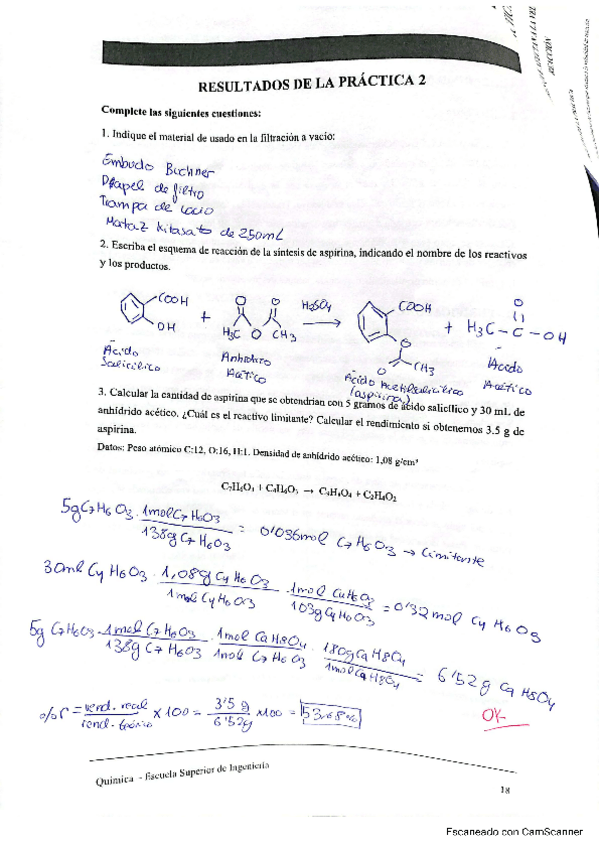 RESULTADOS DE LA PRÁCTICA 2
Complete las siguientes cuestiones:
1. Indique el material de usado en la filtración a vacío:
Embudo Buchner
Papel de filtro
Trampa de vacio
Mataz Kitasato de 250mL
2. Escriba el esquema de reacción de la síntesis de aspirina, indicando el nombre de los reactivos
y los productos.
COOH
OH
+
O O
H₃C O CH₃
H₂SO₄
COOH
O
O CH₃
+ H₃C-C-OH
O
Ácido
Salicílico
Anhídrido
Acético
Ácido Acetilsalicílico
(aspirina)
Ácido
Acético
3. Calcular la cantidad de aspirina que se obtendrían con 5 gramos de ácido salicílico y 30 mL de
anhídrido acético. ¿Cuál es el reactivo limitante? Calcular el rendimiento si obtenemos 3.5 g de
aspirina.
Datos: Peso atómico C:12, O:16, H:1. Densidad de anhídrido acético: 1,08 g/cm³
C₇H₆O₃ + C₄H₆O₃ → C₉H₈O₄ + C₂H₄O₂
5g C7H6O3 · 1mol C7H6O3 / 138g C7H6O3 = 0'036mol C7H6O3 → Limitante
30ml C4H6O3 · 1,08g C4H6O3 / 1ml C4H6O3 · 1mol C4H6O3 / 103g C4H6O3 = 0'32 mol C4H6O3
5g C7H6O3 · 1mol C7H6O3 / 138g C7H6O3 · 1mol C9H8O4 / 1mol C7H6O3 · 180g C9H8O4 / 1mol C9H8O4 = 6'52 g C9H8O4
%r = rend. real / rend. teórico × 100 = 3'5 g / 6'52g × 100 = 53,68%
OK
Química - Escuela Superior de Ingeniería
18
Escaneado con CamScanner